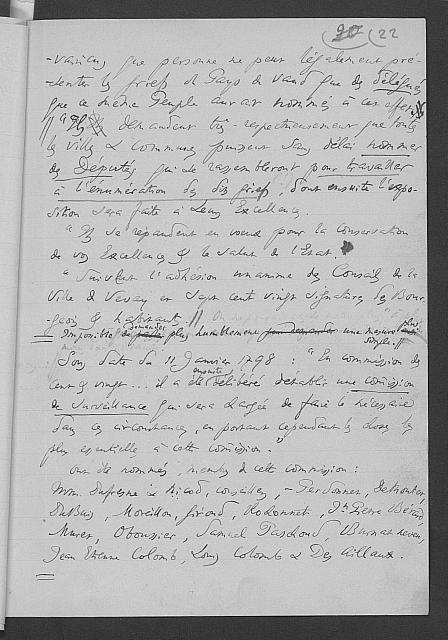 20 (22
-vaincus que personne ne peut légalement pré-
-senter les griefs du Pays de Vaud que des délégués
que ce même Peuple aurait nommés à cet effet.
// " Ils demandent très-respectueusement que toutes
les villes & Communes puissent sans délai nommer
des Députés qui se rassembleront pour travailler
à l'énumération des dits griefs dont ensuite l'expo-
sition sera faite à Leurs Excellences.
" Ils se répandent en voeux pour la Conservation
de vos Excellences & le salut de l'Etat.
" Suivent l'adhésion unanime des Conseils de la
Ville de Vevay et sept cent vingt signatures des Bour-
geois & habitants.
Impossible de demander plus humblement une mesure plus
simple. //
Sous date du 11 Janvier 1798 : " En commission des
cent & vingt ... il a été ensuite délibéré d'établir une comission
de surveillance qui sera chargée de faire le nécessaire
dans ces circonstances, en portant cependant les choses les
plus essentielles à cette comission. "
ont été nommés membres de cette commission :
Mrs. Dufresne & Nicod, conseillers, - Perdonnet, Detrontin,
DuBuis, Moreillon, Girond, Jn Pierre Bérard,
Muret, Oboussier, Samuel Paschoud, Burnat neveu,
Jean Etienne Colomb, Louis Colomb & Des Aillaux.